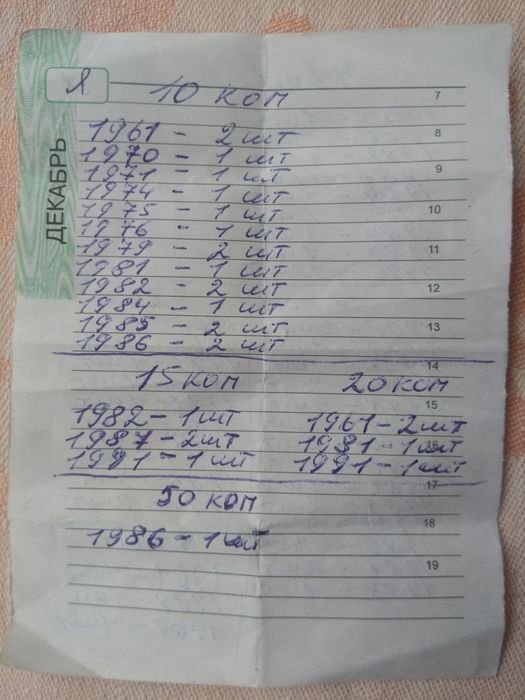 Я
10 коп
7
1961 - 2 шт
8
1970 - 1 шт
1971 - 1 шт
9
1974 - 1 шт
1975 - 1 шт
10
1976 - 1 шт
1979 - 2 шт
11
1981 - 1 шт
1982 - 2 шт
12
1984 - 1 шт
1985 - 2 шт
13
1986 - 2 шт
ДЕКАБРЬ
14
15 коп
20 коп
15
1982 - 1 шт
1987 - 2 шт
1991 - 1 шт
1961 - 2 шт
1981 - 1 шт
16
1991 - 1 шт
17
50 коп
18
1986 - 1 шт
19